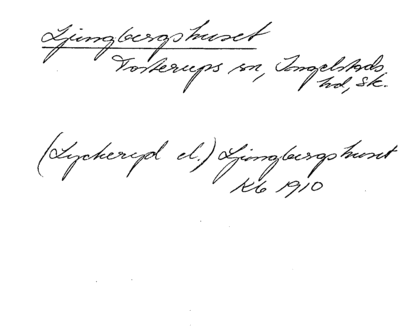 Ljungbergshuset
Tosterups sn, Ingelstads
hd, Sk.
(Lyckeryd el.) Ljungbergshuset
Kb 1910